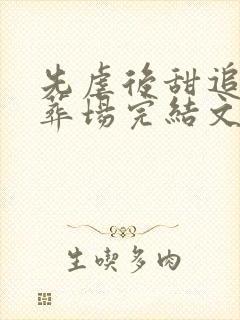 先虐後甜追
葬場完結文
生喫多肉